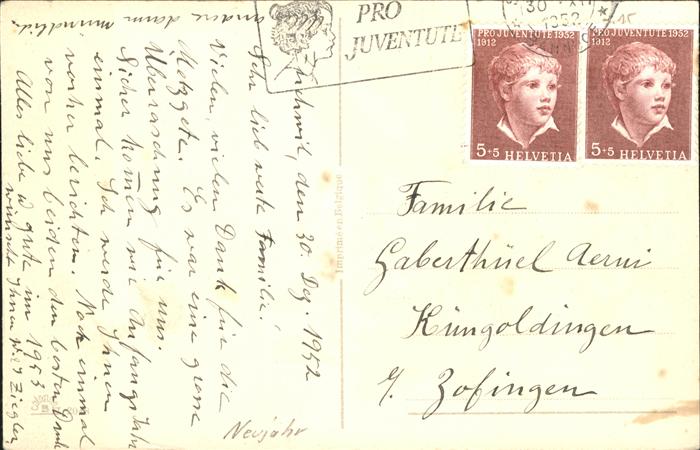 PRO
JUVENTUTE
30. XII
1952
PRO JUVENTUTE 1952
1912
5+5 HELVETIA
PRO JUVENTUTE 1952
1912
5+5 HELVETIA
den 30. Dez. 1952
Sehr liebwerte Familie!
Vielen, vielen Dank für die
Metzgete. Es war eine grosse
Überraschung für uns.
Sicher kommen wir anfangs Jahr
einmal. Ich werde Ihnen
vorher berichten. Noch einmal
von uns beiden den besten Dank
Alles liebe u. gute im 1953
wünscht Ihnen Ziegler
andere dann mündlich.
Imprimé en Belgique
Familie
Gaberthüel Aerni
Küngoldingen
b/ Zofingen
Neujahr